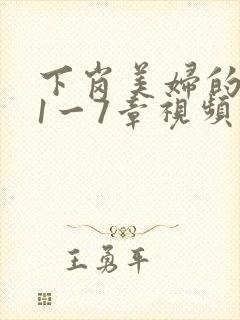 下岗美婦的
1一7章視頻
王勇平